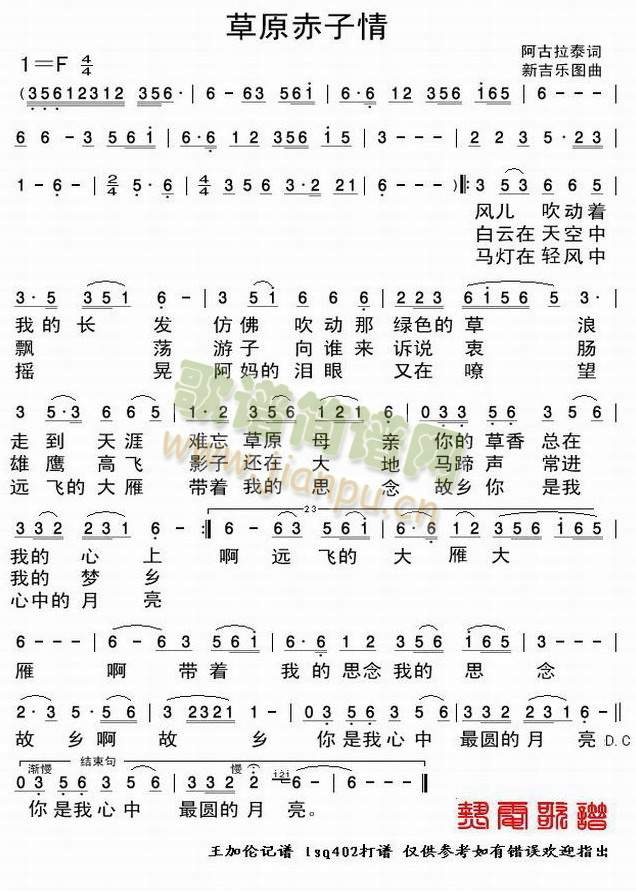 草原赤子情
1=F 4/4
阿古拉泰词
新吉乐图曲
(35612312 356· | 6 - 63 561 | 6·6 12 356 165 | 6 - - - |
6 6 - 3 561 | 6·6 12 356 15 | 3 - - - | 2 2 3 5·23 |
1 - 6 - | 2/4 5·6 | 4/4 356 3·2 21 | 6 - - - )‖: 3 53 6 6 5 |
风儿 吹动着
白云在天空中
马灯在轻风中
3·5 351 6 - | 3 51 6 6 | 223 6156 5 |
我的长 发 仿佛 吹动那 绿色的草 浪
飘 荡 游子 向谁来 诉说 衷 肠
摇 晃 阿妈的泪眼 又在 嘹 望
3 5·3 6 6 5 | 1·2 356 121 6 | 033 56 165 |
走到 天涯 难忘草原 母 亲 你的草香总在
雄鹰 高飞 影子还在大 地 马蹄声 常进
远飞的大雁 带着我的思 念 故乡你 是我
332 231 6 - :‖ 6 - 63 561 | 6·6 12 356 165 |
23
我的心 上 啊 远飞的 大 雁大
我的梦 乡
心中的月 亮
6 - - - | 6 - 63 561 | 6·6 12 356 165 | 3 - - - |
雁 啊 带着 我的思念我的思 念
2·3 5·5 23 | 3 2321 1 - | 03 56 5 3 | 332 231 6 -‖
故乡啊 故 乡 你是我心中 最圆的月 亮 D.C
渐慢 结束句 慢
03 56 5 3 | 332 2 6 | 121 3 - - - ‖
你是我心中 最圆的月 亮。
歌谱简谱网
www.jianpu.cn
王加伦记谱 lsq402打谱 仅供参考如有错误欢迎指出